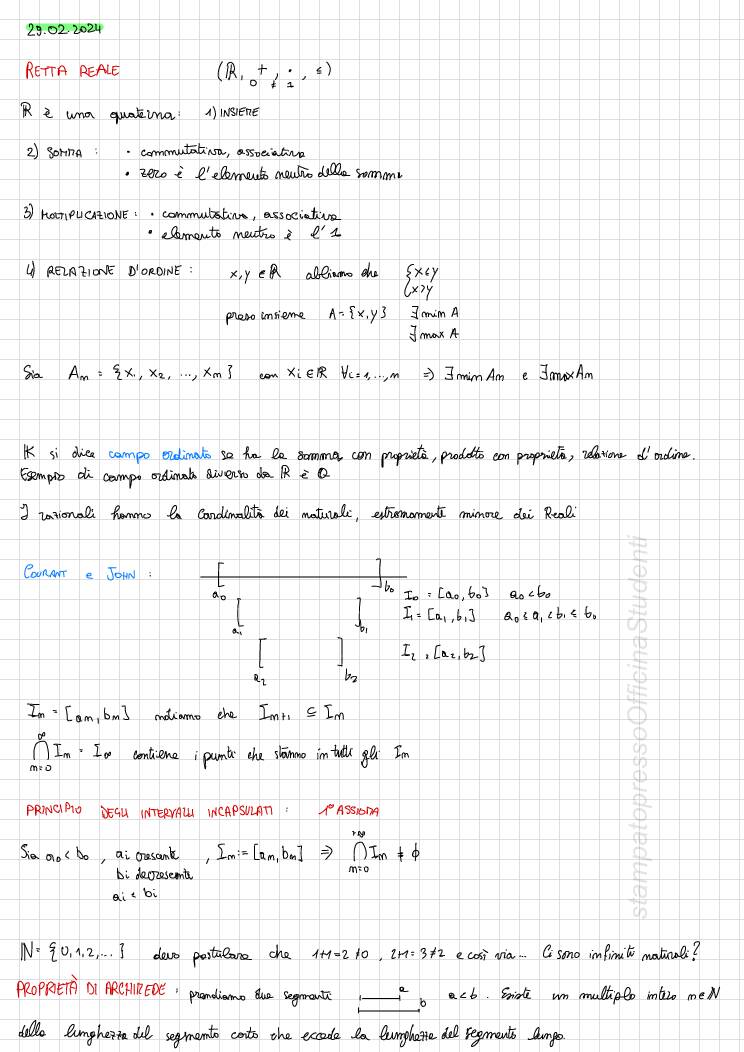 29.02.2024
RETTA REALE (ℝ, + , · , ≤)
0 ≠ 1
ℝ è una quaterna: 1) INSIEME
2) SOMMA : • commutativa, associativa
• zero è l'elemento neutro della somma
3) MOLTIPLICAZIONE : • commutativa, associativa
• elemento neutro è l' 1
4) RELAZIONE D'ORDINE : x,y ∈ ℝ abbiamo che { x≤y
x>y
preso insieme A = {x,y} ∃ min A
∃ max A
Sia Am = {x1, x2, ..., xm} con xi ∈ ℝ ∀i=1,...,m ⇒ ∃ min Am e ∃ max Am
K si dice campo ordinato se ha la somma con proprietà, prodotto con proprietà, relazione d'ordine.
Esempio di campo ordinato diverso da ℝ è Q
I razionali hanno la cardinalità dei naturali, estremamente minore dei Reali
COURANT e JOHN :
a0 b0 I0 = [a0, b0] a0 < b0
a1 b1 I1 = [a1, b1] a0 ≤ a1 < b1 ≤ b0
a2 b2 I2 = [a2, b2]
Im = [am, bm] notiamo che Im+1 ⊆ Im
∞
⋂ Im = I∞ contiene i punti che stanno in tutti gli Im
m=0
PRINCIPIO DEGLI INTERVALLI INCAPSULATI : 1° ASSIOMA
Sia a0 < b0 , ai crescente , Im := [am, bm] ⇒ +∞ ⋂ m=0 Im ≠ ∅
bi decrescente
ai < bi
ℕ = {0,1,2,...} devo postulare che 1+1=2≠0 , 2+1=3≠2 e così via... Ci sono infiniti naturali?
PROPRIETÀ DI ARCHIMEDE : prendiamo due segmenti a b a<b . Esiste un multiplo intero m∈ℕ
della lunghezza del segmento corto che eccede la lunghezza del segmento lungo.
stampatopressoOfficinaStudenti